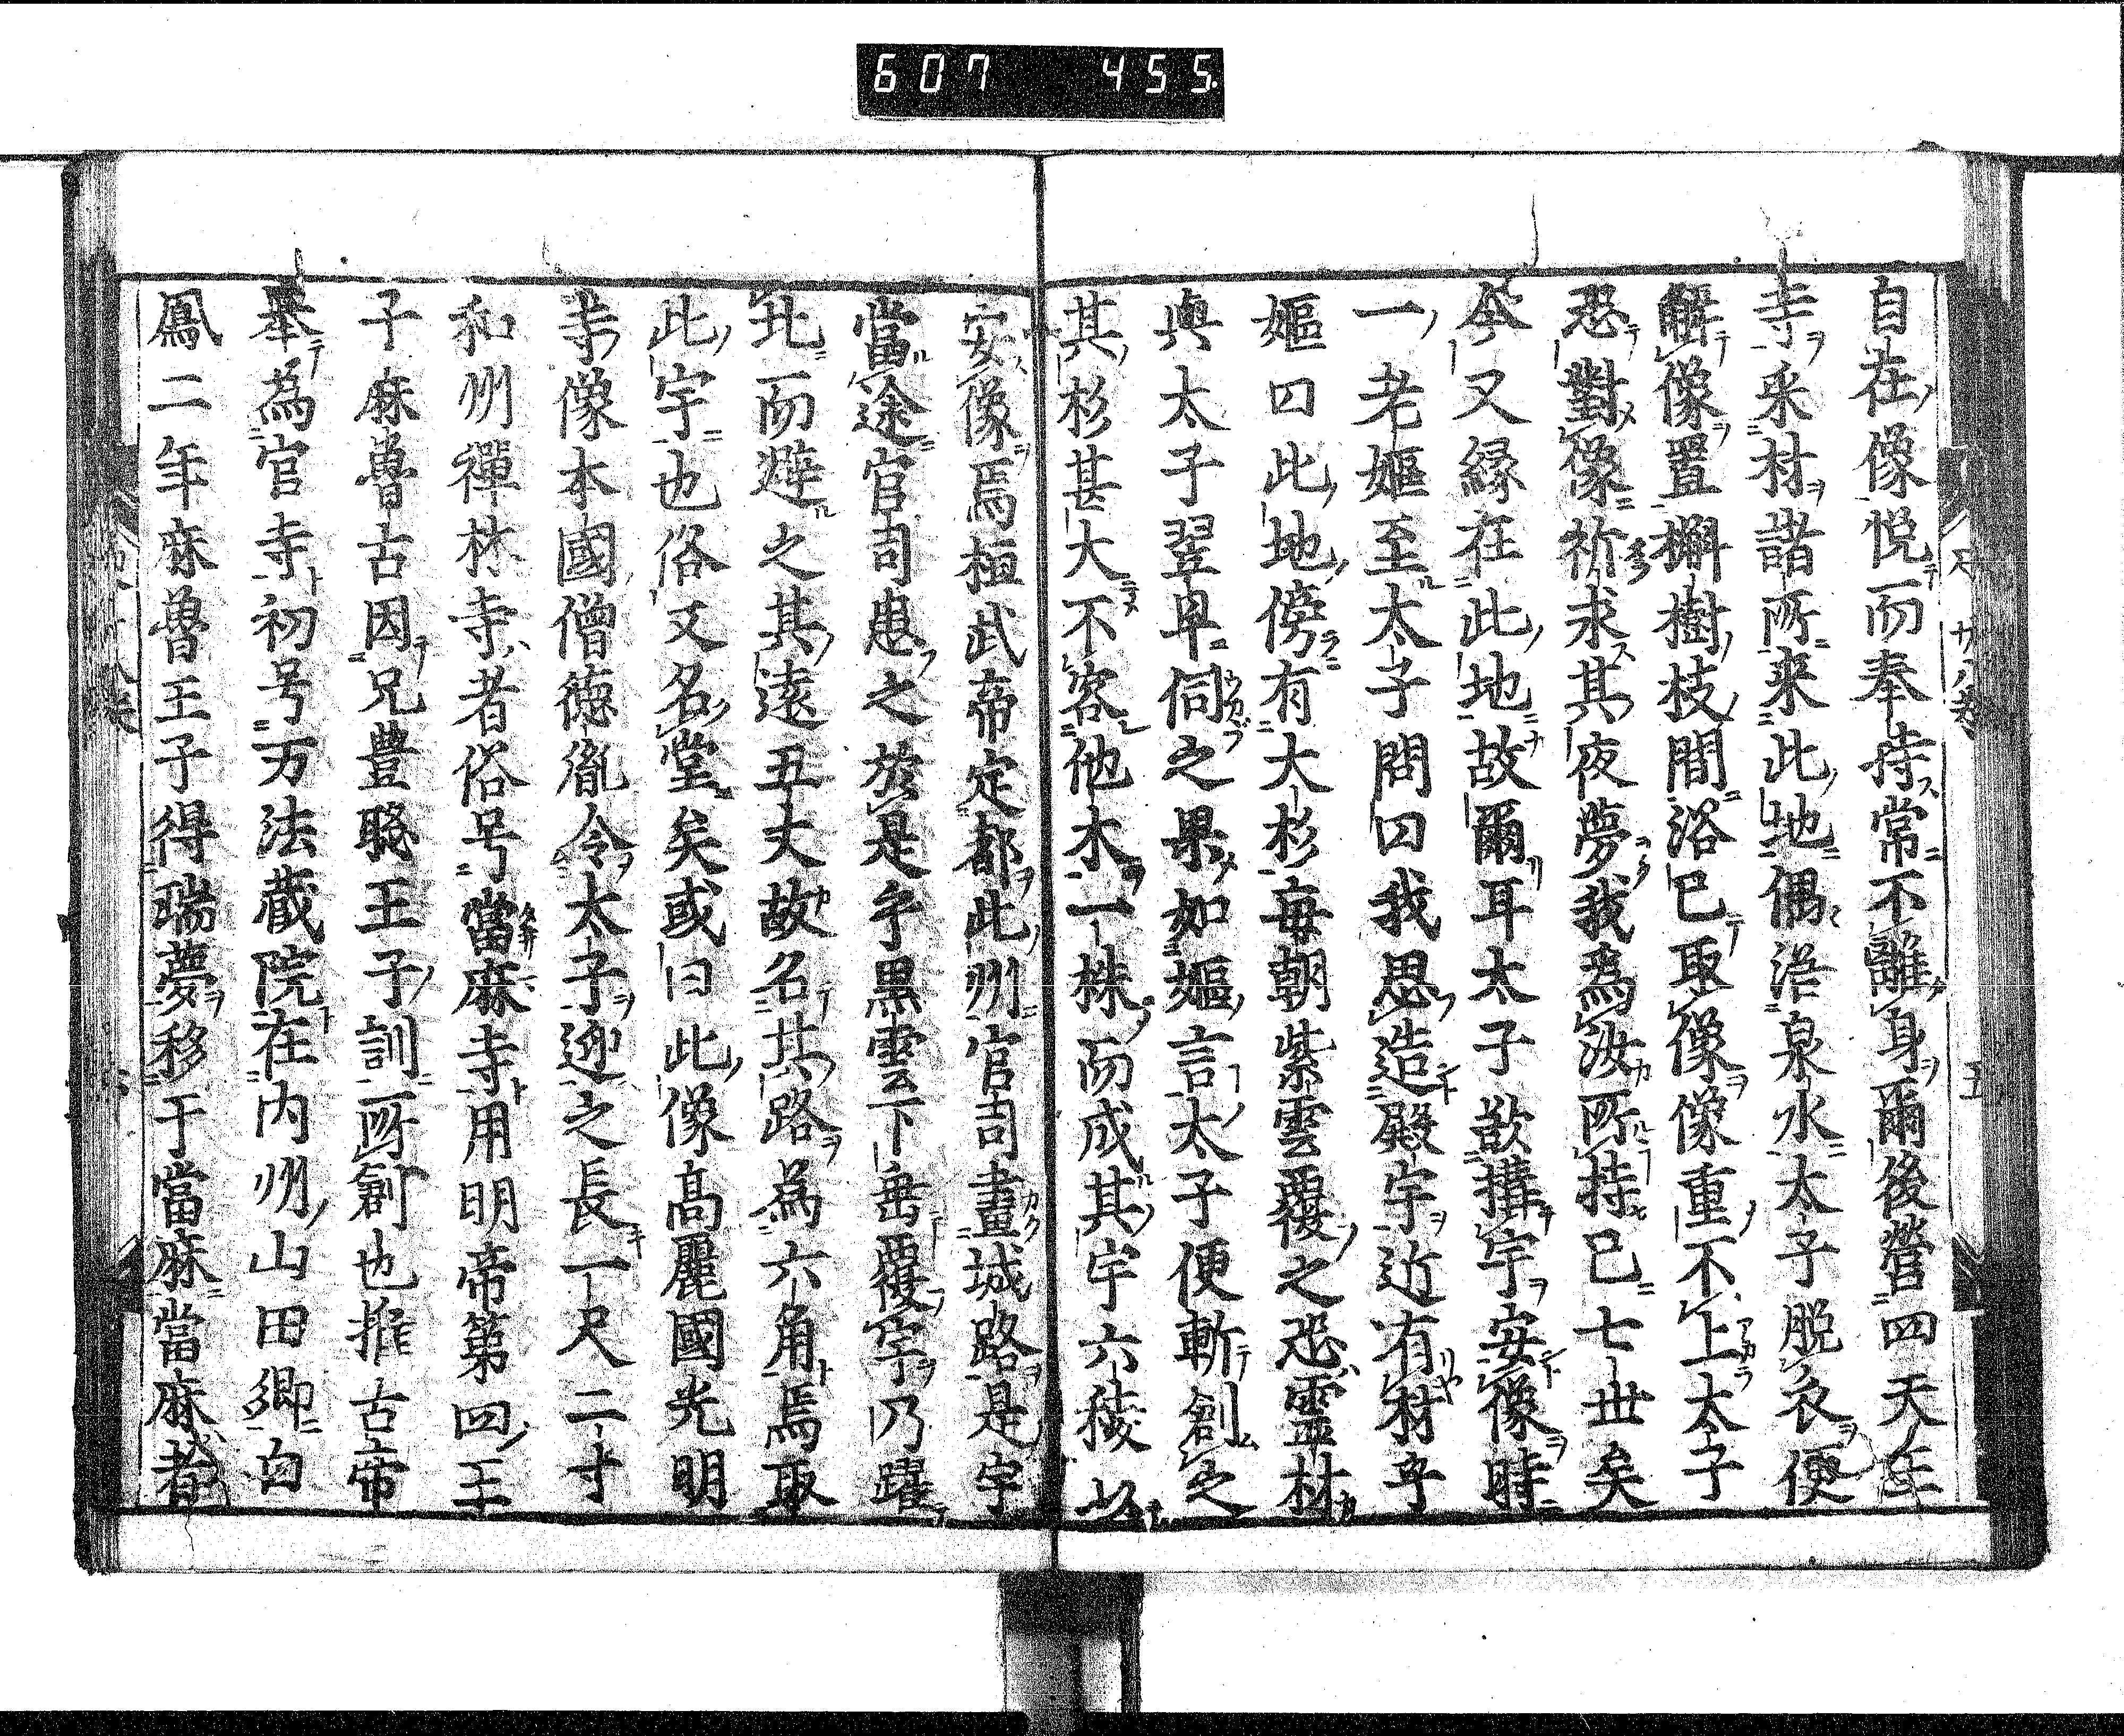 607 455
自在像悦而奉持常不離身爾後營四天王
寺采材諸所来此地偶浴泉水太子脱衣便
解像置槲樹枝間浴已取像像重不上太子
恐對像祈求其夜夢我爲汝所持已七世矣
今又縁在此地故爾耳太子欲搆宇安像時
一老嫗至太子問曰我思造殿宇近有材乎
嫗曰此地傍有大杉毎朝紫雲覆之恐霊材
與太子翌早伺之果如嫗言太子便斬創之
其杉甚大不容他木一株而成其宇六稜以
安像焉桓武帝定都此州官司畫城路是宇
當途官司患之於是乎黒雲下垂覆宇乃躍
北而避之其遠五丈故名其路為六角焉取
此宇也俗又名堂矣或曰此像高麗國光明
寺像本國僧徳胤令太子迎之長一尺二寸
和州禪林寺者俗号當麻寺用明帝第四王
子麻魯古因兄豊聰王子訓所創也推古帝
奉為官寺初号万法蔵院在内州山田郷白
鳳二年麻魯王子得瑞夢移于當麻當麻者